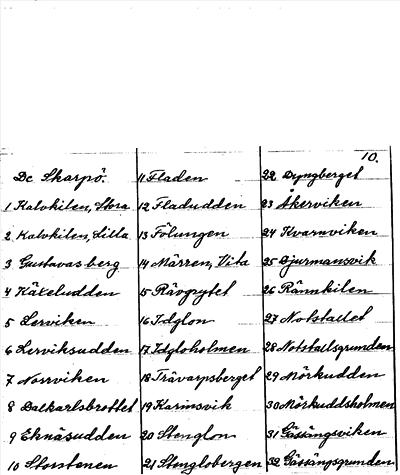 10.
Dc Skarpö.
1 Kalvkilen, Stora
2 Kalvkilen, Lilla
3 Gustavsberg
4 Käxeludden
5 Lerviken
6 Lerviksudden
7 Norrviken
8 Dalkarlsbrottet
9 Eknäsudden
10 Storstenen
11 Fladen
12 Fladudden
13 Fölungen
14 Märren, Vita
15 Rävgrytet
16 Idglon
17 Idgloholmen
18 Trävarpsberget
19 Karinsvik
20 Stenglon
21 Stenglobergen
22 Dyngberget
23 Åkerviken
24 Kvarnviken
25 Djurmansvik
26 Rännkilen
27 Notstallet
28 Notstallsgrunden
29 Mörkudden
30 Mörkuddsholmen
31 Gåssängsviken
32 Gåssängsgrunden